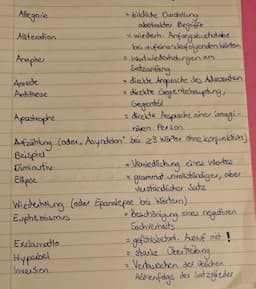 Allegorie = bildliche Darstellung
abstrakter Begriffe
Alliteration = wiederh. Anfangsbuchstabe
bei aufeinanderfolgenden Wörtern
Anapher = Wortwiederholungen am
Satzanfang
= direkte Ansprache des Adressaten
Antithese = direkte Gegenbehauptung,
Gegenteil
Apostrophe = direkte Ansprache einer imagi-
nären Person
Aufzählung (oder "Asyndeton" bei ≥3 Wörter ohne Konjunktion)
Beispiel
Diminutiv = Verniedlichung eines Wortes
Ellipse = grammat. unvollständiger, aber
verständlicher Satz
Wiederholung (oder Epanalepse bei Wörtern)
Euphemismus = beschönigung eines negativen
Sachverhalts
Exclamatio = gefühlsbetont. Ausruf mit !
Hyperbel = starke Übertreibung
Inversion = Vertauschen der üblichen
Reihenfolge der Satzglieder